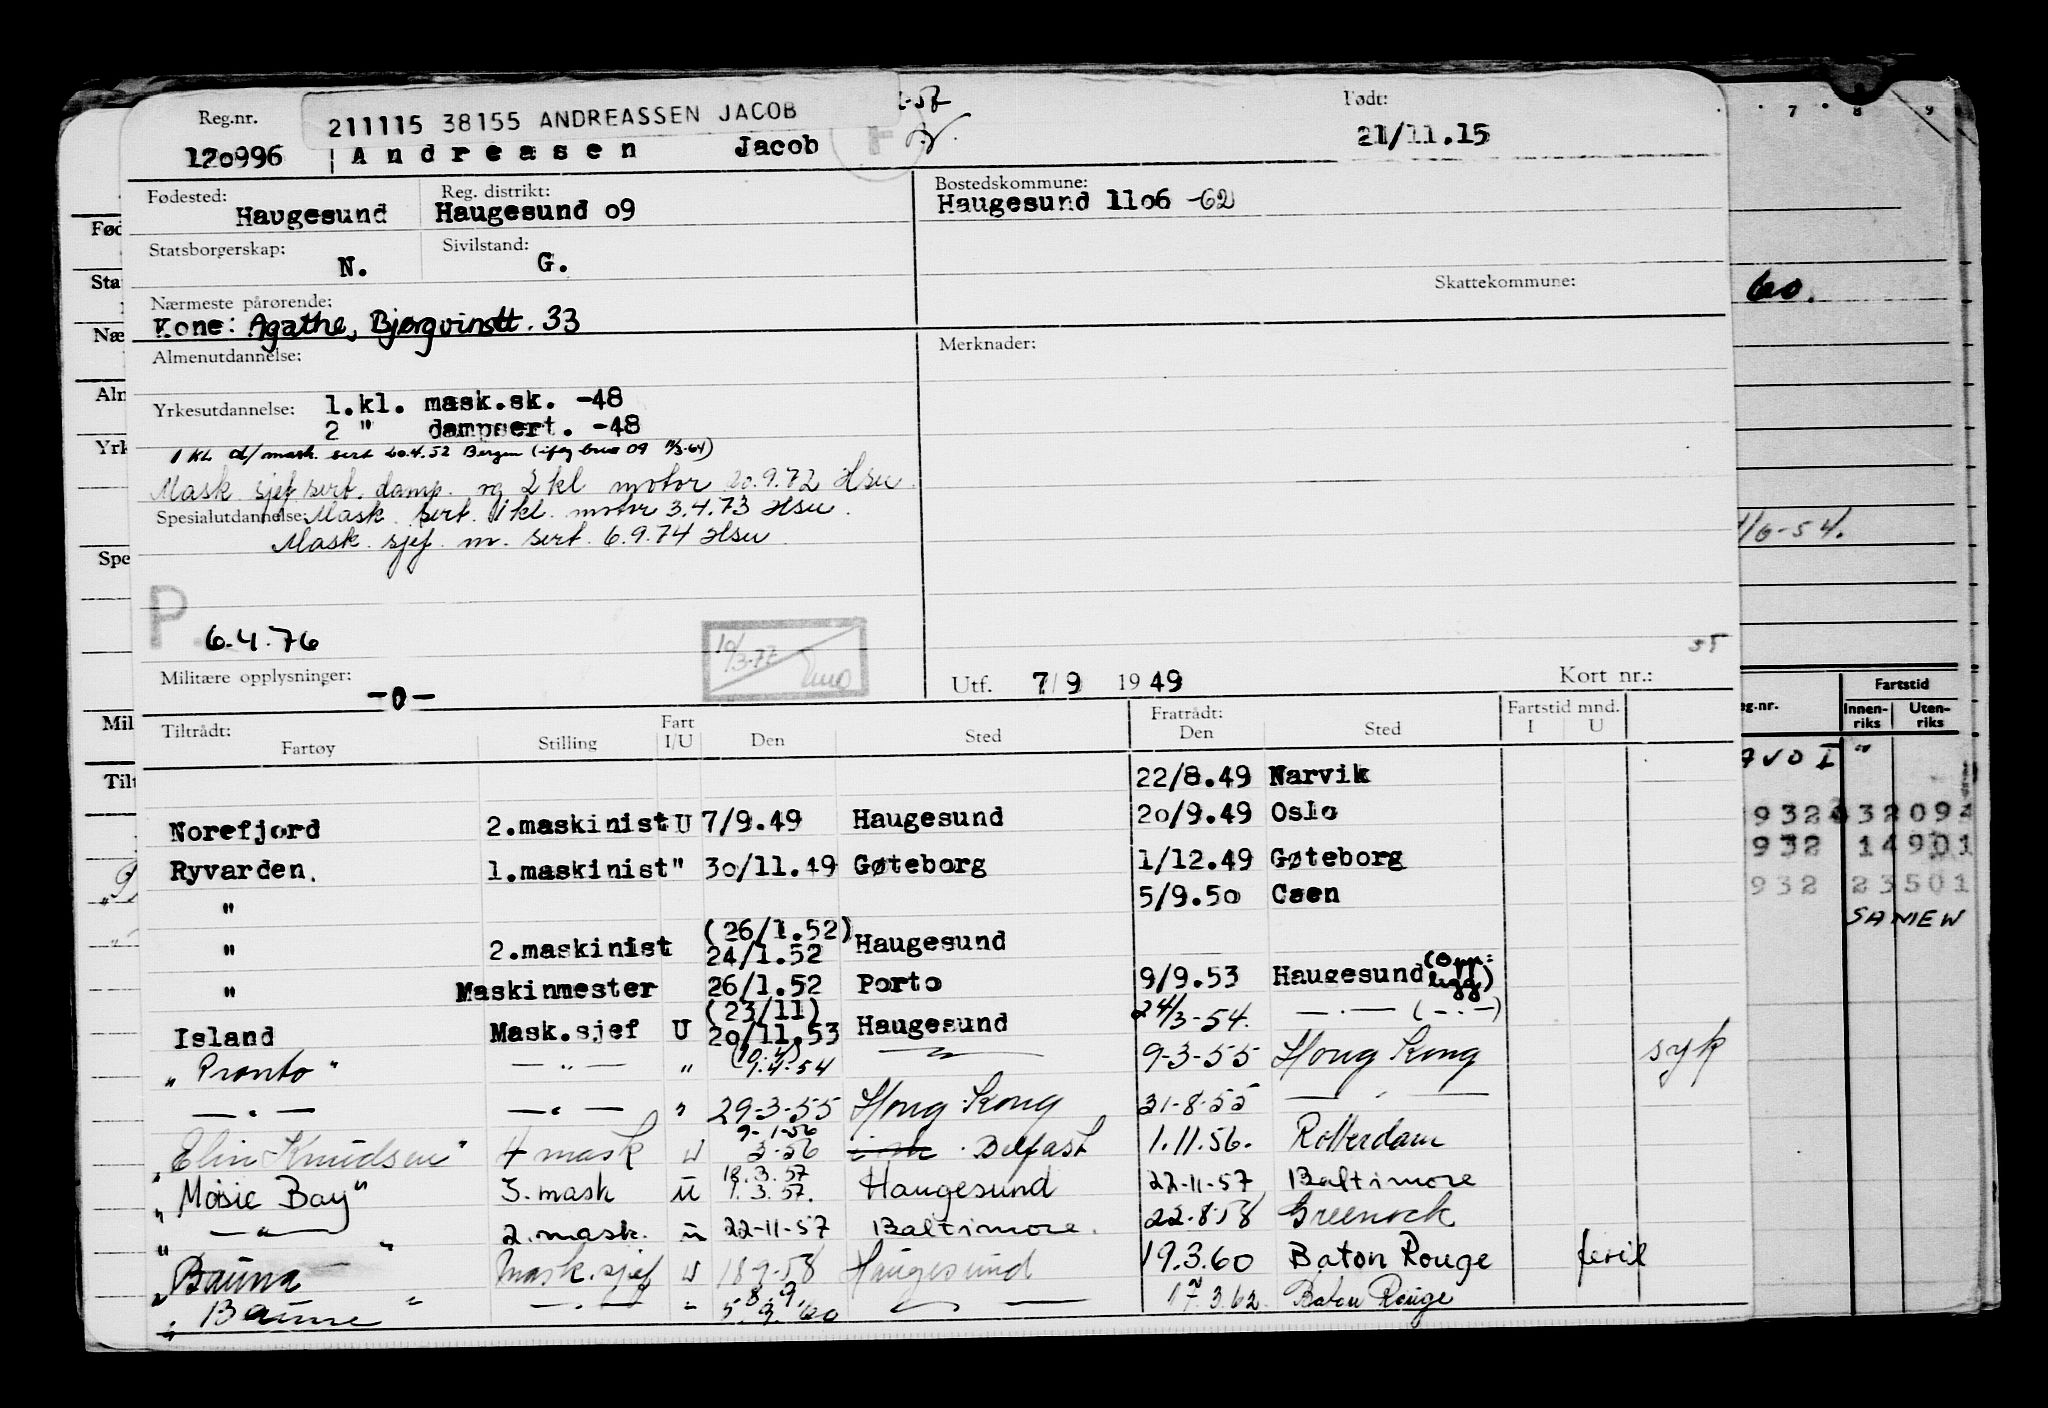 211115 38155 ANDREASSEN JACOB
Reg.nr.
120996 Andreasen Jacob
Født:
21/11.15
Fødested: Haugesund
Reg. distrikt: Haugesund 09
Bostedskommune:
Haugesund 1106 -62
Statsborgerskap: N.
Sivilstand: G.
Skattekommune:
Nærmeste pårørende:
Kone: Agathe, Bjørgvinstt. 33
Almenutdannelse:
Merknader:
Yrkesutdannelse: 1.kl. mask.sk. -48
2 " dampsert. -48
1 KL d/mask. sert 20.4.52 Bergen
Mask sjef sert. damp. og 2 kl motor 20.9.72 Hsu.
Spesialutdannelse: Mask. sert. 1 kl. motor 3.4.73 Hsu.
Mask. sjef. m. sert. 6.9.74 Hsu.
P.
6.4.76
10/3-77
Militære opplysninger: -0-
Utf. 7/9 1949
Kort nr.:
Tiltrådt: Fartøy Stilling Fart I/U Den Sted Fratrådt: Den Sted Fartstid mnd. I U
22/8.49 Narvik
Norefjord 2.maskinist U 7/9.49 Haugesund 20/9.49 Oslo
Ryvarden. 1.maskinist " 30/11.49 Gøteborg 1/12.49 Gøteborg
" 5/9.50 Caen
" 2.maskinist (26/1.52) 24/1.52 Haugesund
" Maskinmester 26/1.52 Porto 9/9.53 Haugesund (Opp: legg)
Island Mask.sjef U (23/11) 20/11.53 Haugesund 24/3-54. — . — (- . -)
"Pronto" — " — " (10.4) 9.4.54 — " — 9-3-55 Hong Kong syk
— " — — " — " 29-3-55 Hong Kong 31-8-55 — " —
"Elin Knudsen" 4 mask U 9-1-56 Belfast 1.11.56. Rotterdam
"Mosie Bay" 3. mask U 18.3.57 1.3.57. Haugesund 22-11-57 Baltimore
" — " — " 2. mask. U 22-11-57 Baltimore. 22-8-58 Greenock
"Bauna Mask.sjef U 18-9-58 Haugesund 19.3.60 Baton Rouge ferie
"Baune" — " — " 8.9. 5.9.60 — " — 17.3.62. Baton Rouge
7 8 9
60.
Fartstid
Innenriks Utenriks
932 14901
932 23501
SANIEW